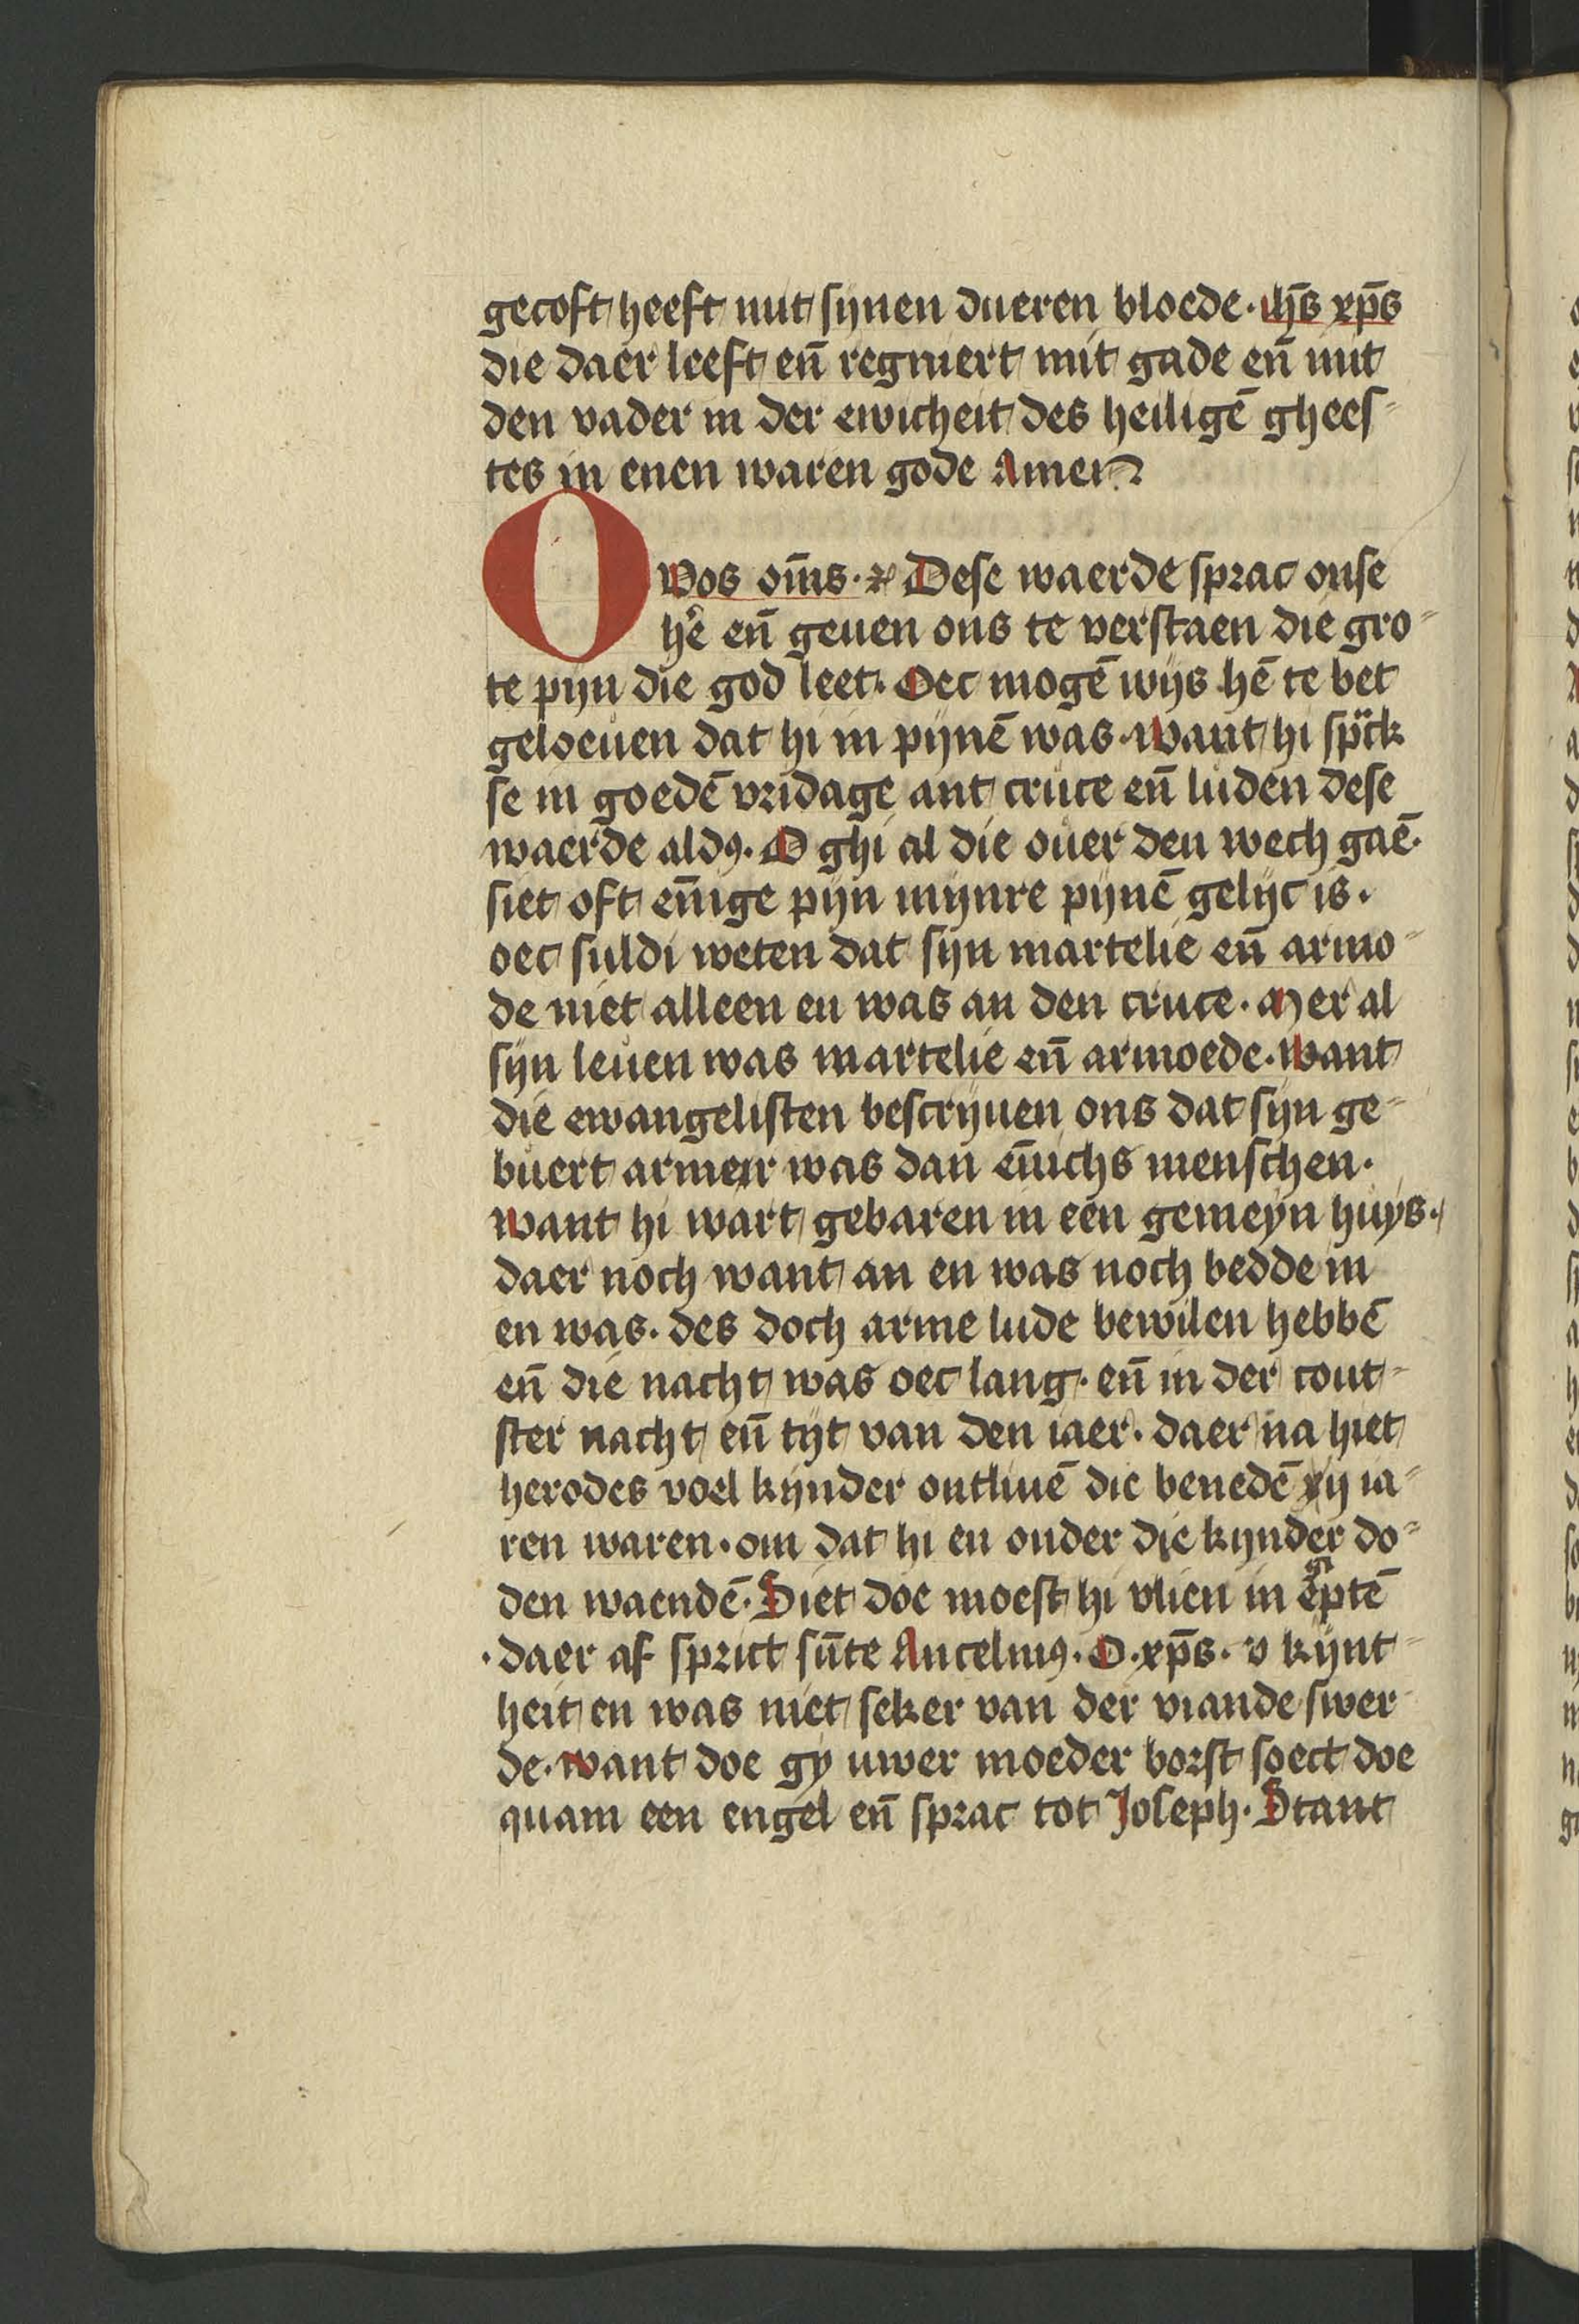 gecoft heeft mit synen dueren bloede. ihs̄ xp̄s
die daer leeft en̄ regniert mit gade en̄ mit
den vader in der ewicheit des heiligē ghees-
tes in enen waren gode Amen
O vos om̄s. ⁊c Dese waerde sprac onse
he᷑ en̄ geuen ons te verstaen die gro-
te pyn die god leet. Oec mogē wijs hē te bet
geloeuen dat hi in pijnē was. want hi sp̈ck
se in goedē vridage ant cruce en̄ luden dese
waerde aldꝰ. O ghi al die ouer den wech gaē.
siet oft en̄ige pyn mijnre pijnē gelijc is.
oec suldi weten dat sijn martelie en̄ armo-
de niet alleen en was an den cruce. Mer al
sijn leuen was martelie en̄ armoede. want
die ewangelisten bescrijuen ons dat sijn ge-
buert armerr was dan en̄ichs menschen.
want hi wart gebaren in een gemeyn huys.
daer noch want an en was noch bedde in
en was. des doch arme lude bewilen hebbē
en̄ die nacht was oec lang. en̄ in der cout-
ster nacht en̄ tijt van den iaer. daer na hiet
herodes voel kijnder ontliuē die benedē xij ia-
ren waren. om dat hi en onder die kijnder do-
den waendē. Siet doe moest hi vlien in egiptē
daer af sprict sūte Ancelmꝰ. O. xp̄s. v kijnt-
heit en was niet seker van der viande swer-
de. want doe gy uwer moeder borst soect doe
quam een engel en̄ sprac tot Joseph. Stant